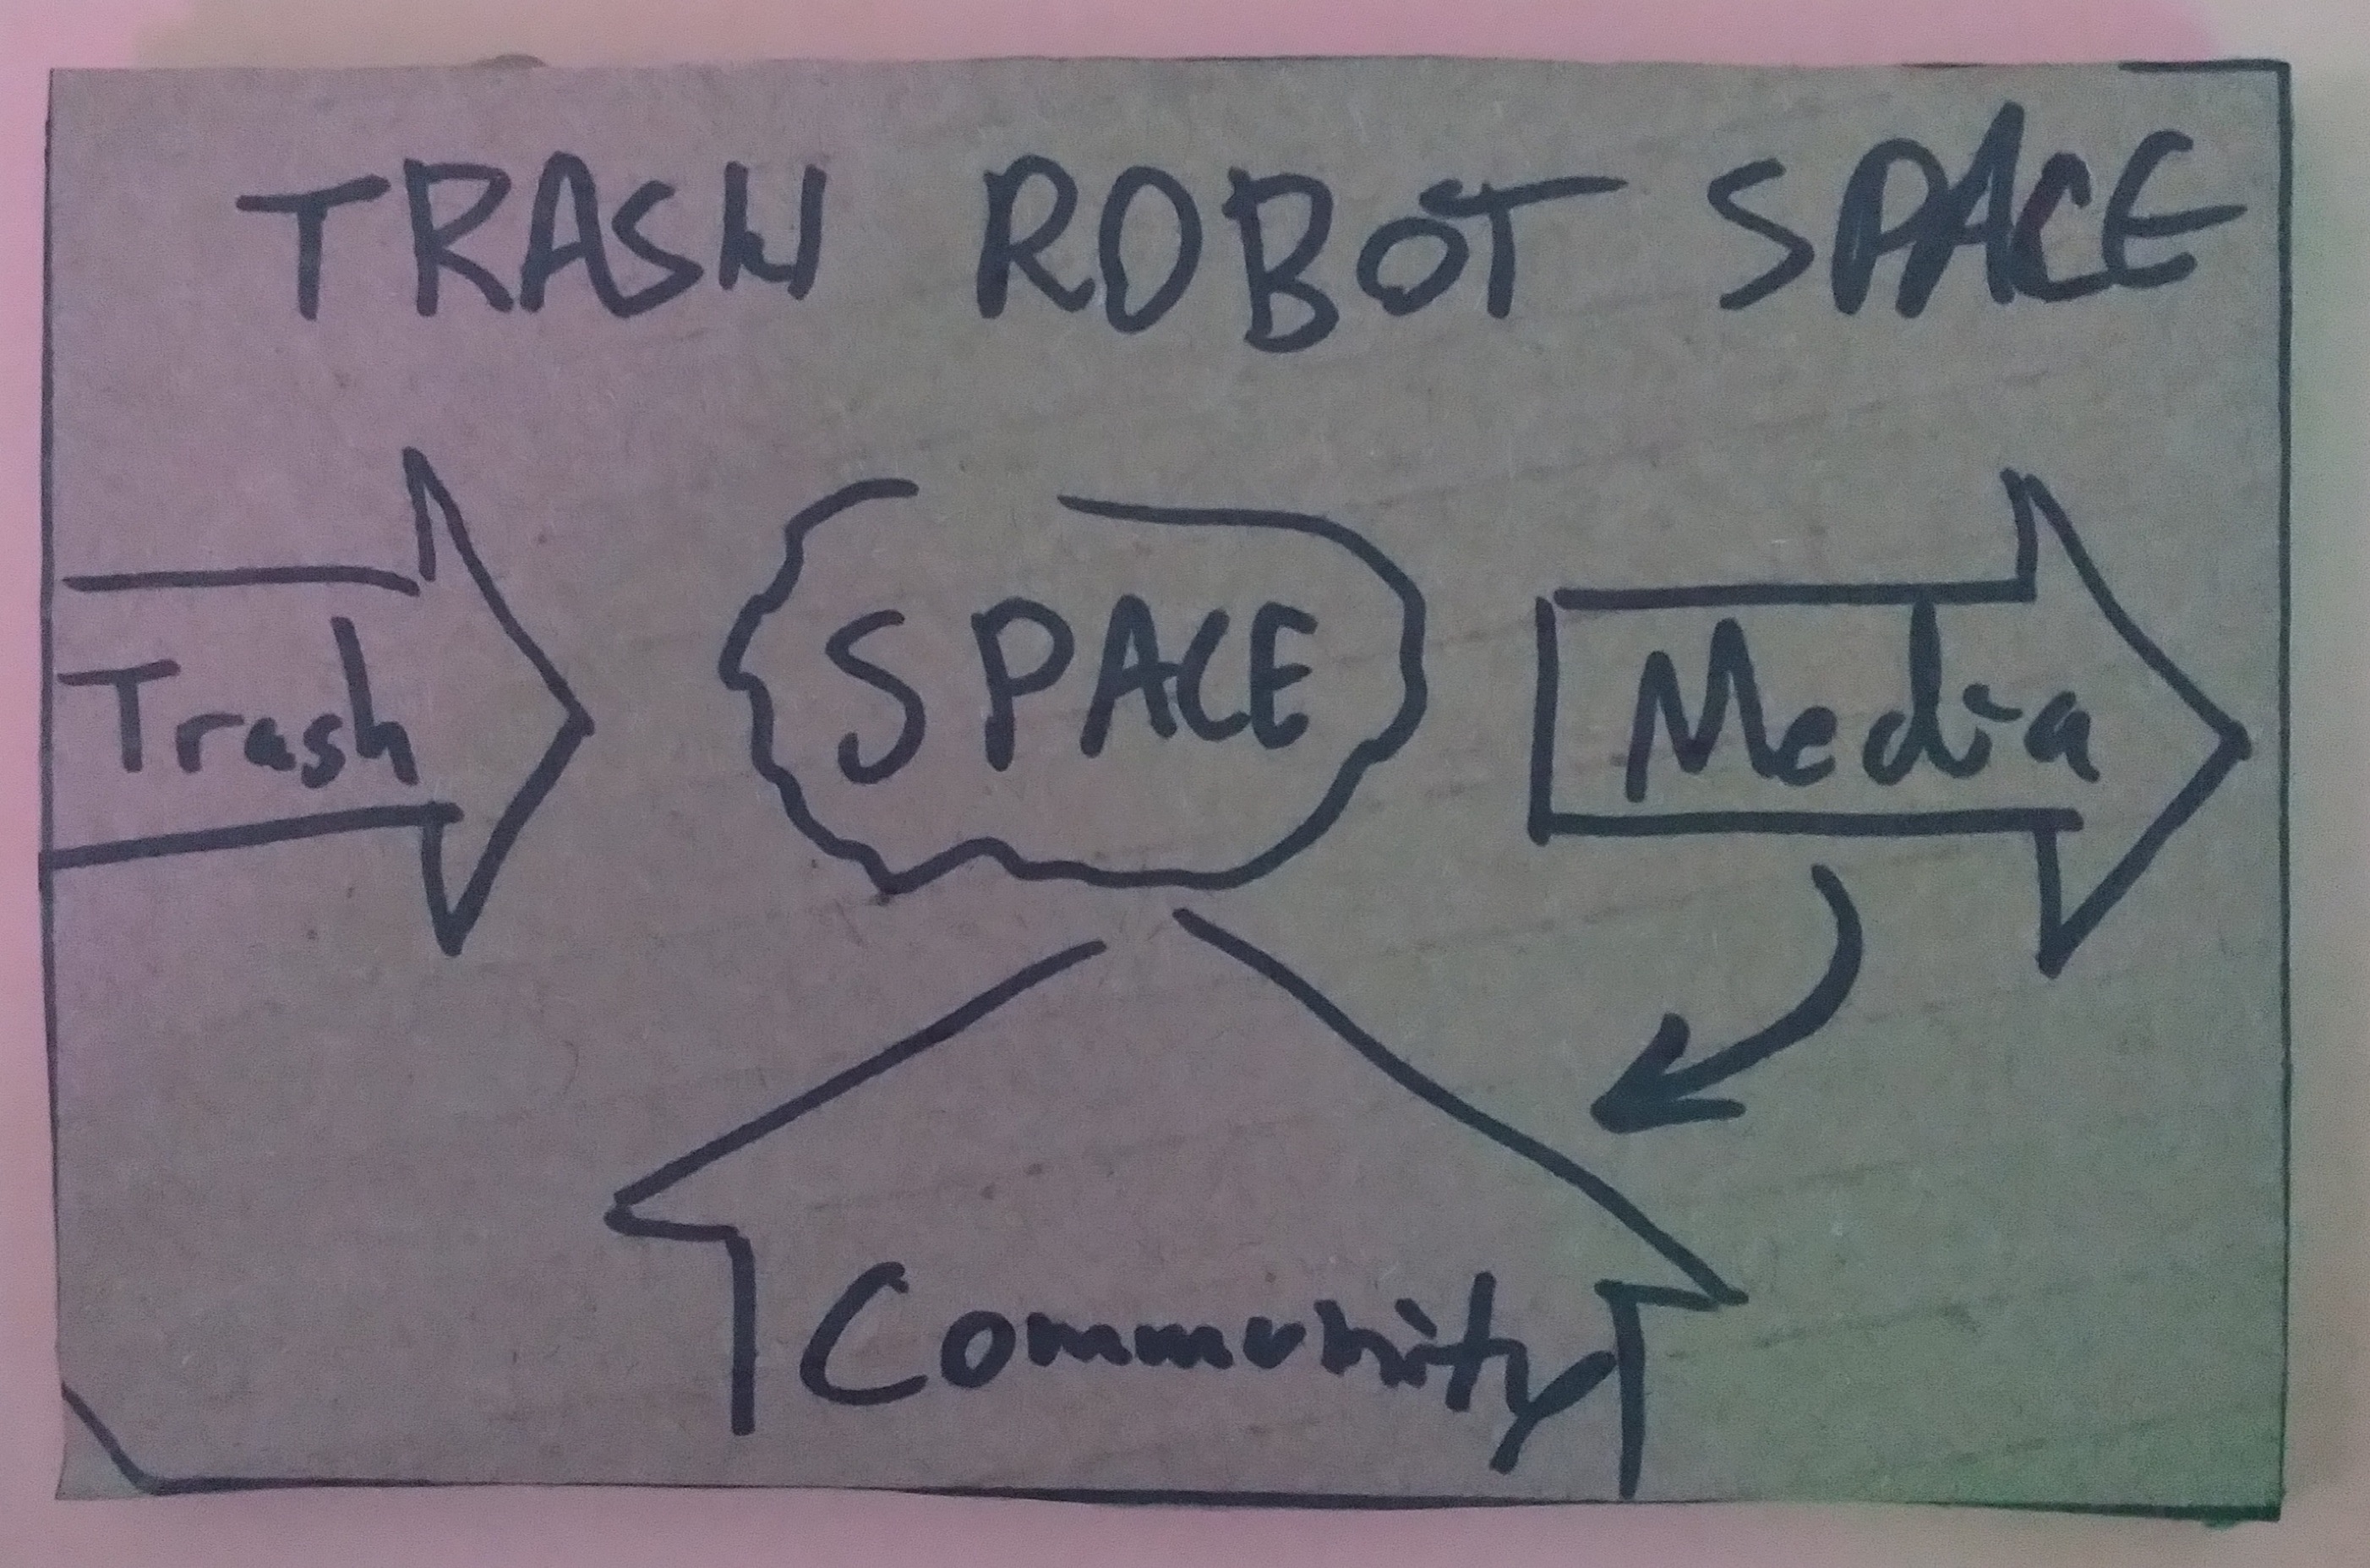 TRASH ROBOT SPACE
Trash
SPACE
Media
Community